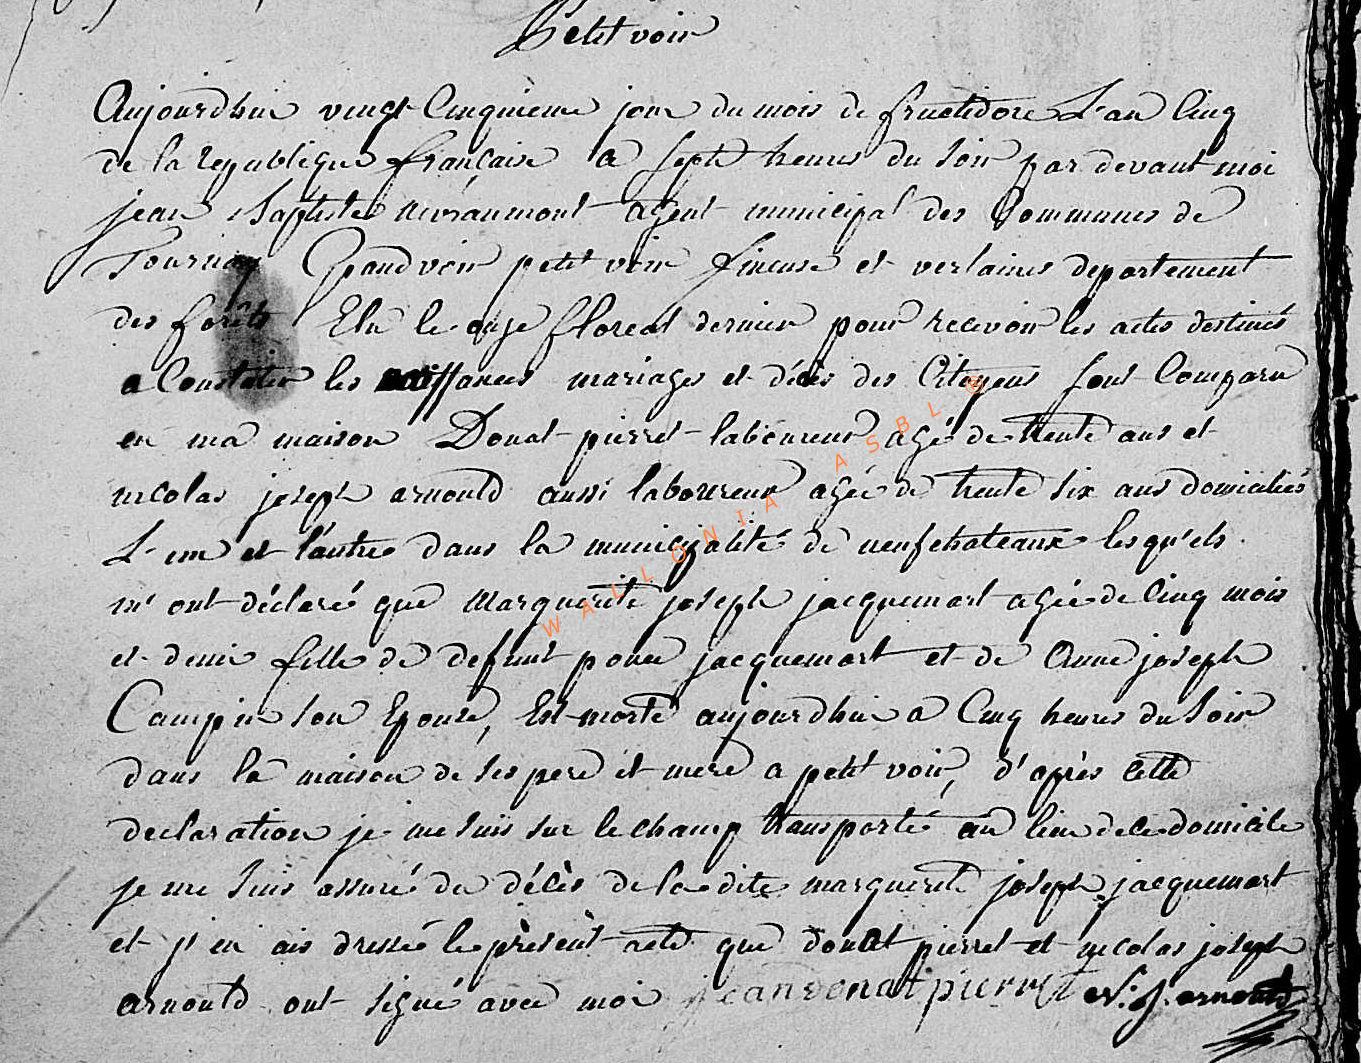 Petit voir
Aujourdhui vingt Cinquieme jour du mois de fructidore L'an Cinq
de la republique française a sept heures du soir par devant moi
jean Baptiste agent municipal des Communes de
Tournay Grandvoir petit voir fineuse et verlaines departement
des forêts Elu le onze floreal dernier pour recevoir les actes destinés
a Constater les naissances mariages et décès des Citoyens sont Comparu
en ma maison Donat pierret laboureur agé de trente ans et
nicolas joseph arnould aussi laboureur agée de trente six ans domiciliés
L'un et l'autre dans la municipalité de neufchateaux lesqu'els
m'ont déclaré que marguerite joseph jacquemart agée de Cinq mois
et demie fille de defunt jacquemart et de Anne joseph
Campin son Epouse, Est morte aujourdhui a Cinq heures du soir
dans la maison de ses pere et mere a petit voir, d'après cette
declaration je me suis sur le champ transporté au lieu de ce domicile
je me suis assuré du décès de la dite marguerite joseph jacquemart
et j'en ais dressé le présent acte que donat pierret et nicolas joseph
arnould ont signé avec moi jean donat pierret N: J: arnould
WALLONIA ASBL